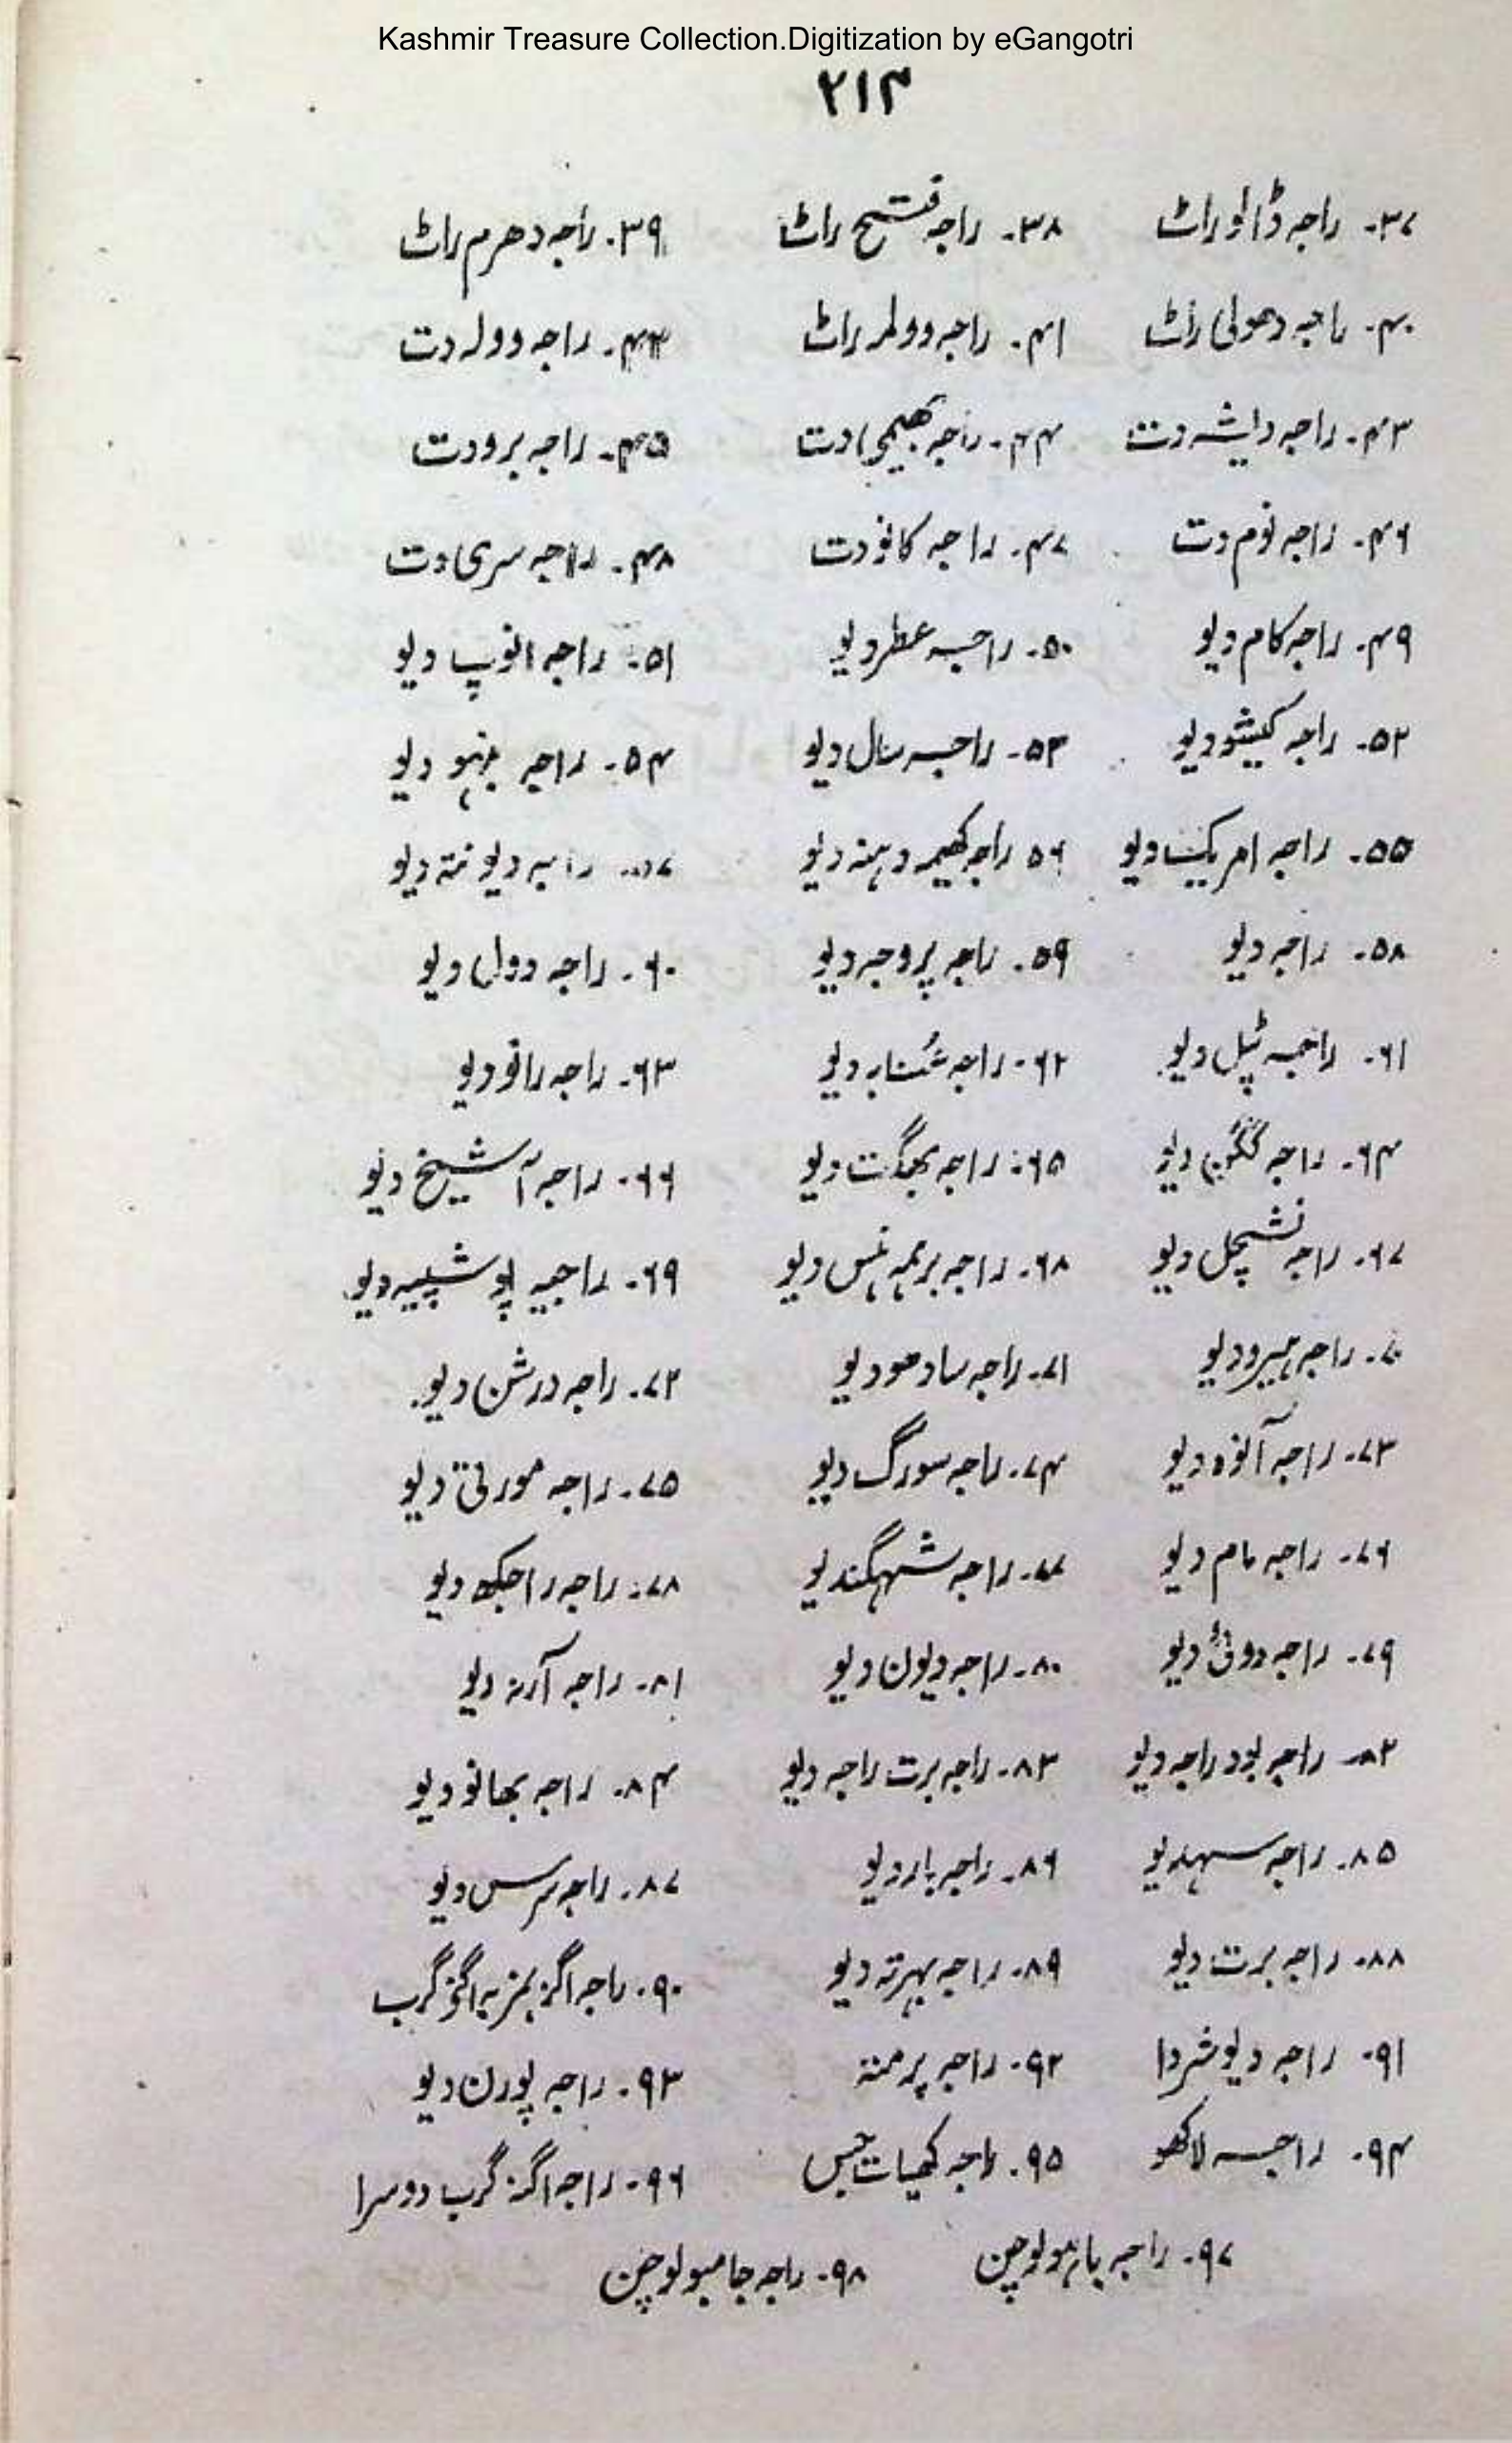 Kashmir Treasure Collection.Digitization by eGangotri
۲۱۴
۳۷۔ راجہ ڈالو راٹ ۳۸۔ راجہ فتح راٹ ۳۹۔ راجہ دھرم راٹ
۴۰۔ راجہ دھولی راٹ ۴۱۔ راجہ وولر راٹ ۴۲۔ راجہ وولر دت
۴۳۔ راجہ دایشہ دت ۴۴۔ راجہ بھیمی دت ۴۵۔ راجہ برودت
۴۶۔ راجہ نوم دت ۴۷۔ راجہ کانو دت ۴۸۔ راجہ سری دت
۴۹۔ راجہ کام دیو ۵۰۔ راجہ عطر دیو ۵۱۔ راجہ انوپ دیو
۵۲۔ راجہ کیشو دیو ۵۳۔ راجہ سال دیو ۵۴۔ راجہ دیو
۵۵۔ راجہ امر دیو ۵۶ راجہ کھیمہ دیو ۵۷۔ راجہ دیو نتہ دیو
۵۸۔ راجہ دیو ۵۹۔ راجہ پروجہ دیو ۶۰۔ راجہ دول دیو
۶۱۔ راجہ ٹپل دیو ۶۲۔ راجہ دیو ۶۳۔ راجہ رانو دیو
۶۴۔ راجہ دیو ۶۵۔ راجہ بھگت دیو ۶۶۔ راجہ آشیخ دیو
۶۷۔ راجہ نشچل دیو ۶۸۔ راجہ برہمہ ہنس دیو ۶۹۔ راجہ پوشپیہ دیو
۷۰۔ راجہ ہیرو دیو ۷۱۔ راجہ سادھو دیو ۷۲۔ راجہ درشن دیو
۷۳۔ راجہ آنوہ دیو ۷۴۔ راجہ سورگ دیو ۷۵۔ راجہ مورتی دیو
۷۶۔ راجہ مام دیو ۷۷۔ راجہ شہگندیو ۷۸۔ راجہ راجکھ دیو
۷۹۔ راجہ دیو ۸۰۔ راجہ دیون دیو ۸۱۔ راجہ آرنہ دیو
۸۲۔ راجہ بود راجہ دیو ۸۳۔ راجہ برت راجہ دیو ۸۴۔ راجہ بھانو دیو
۸۵۔ راجہ سہدیو ۸۶۔ راجہ بار دیو ۸۷۔ راجہ سرس دیو
۸۸۔ راجہ برت دیو ۸۹۔ راجہ بہرتہ دیو ۹۰۔ راجہ گرب
۹۱۔ راجہ دیو شردا ۹۲۔ راجہ پرمنہ ۹۳۔ راجہ پورن دیو
۹۴۔ راجہ لاکھو ۹۵۔ راجہ کھیات جس ۹۶۔ راجہ اگنہ گرب دوسرا
۹۷۔ راجہ باہولوچن ۹۸۔ راجہ جامبولوچن